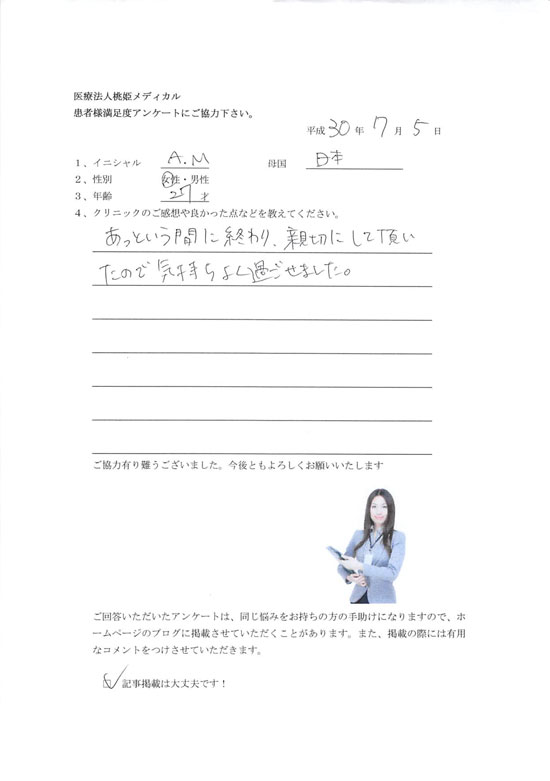 医療法人桃姫メディカル
患者様満足度アンケートにご協力下さい。
平成 30 年 7 月 5 日
1、イニシャル A.M 母国 日本
2、性別 女性・男性
3、年齢 27 才
4、クリニックのご感想や良かった点などを教えてください。
あっという間に終わり、親切にして頂い
たので気持ちよく過ごせました。
ご協力有り難うございました。今後ともよろしくお願いいたします
ご回答いただいたアンケートは、同じ悩みをお持ちの方の手助けになりますので、ホ
ームページのブログに掲載させていただくことがあります。また、掲載の際には有用
なコメントをつけさせていただきます。
☑ 記事掲載は大丈夫です！